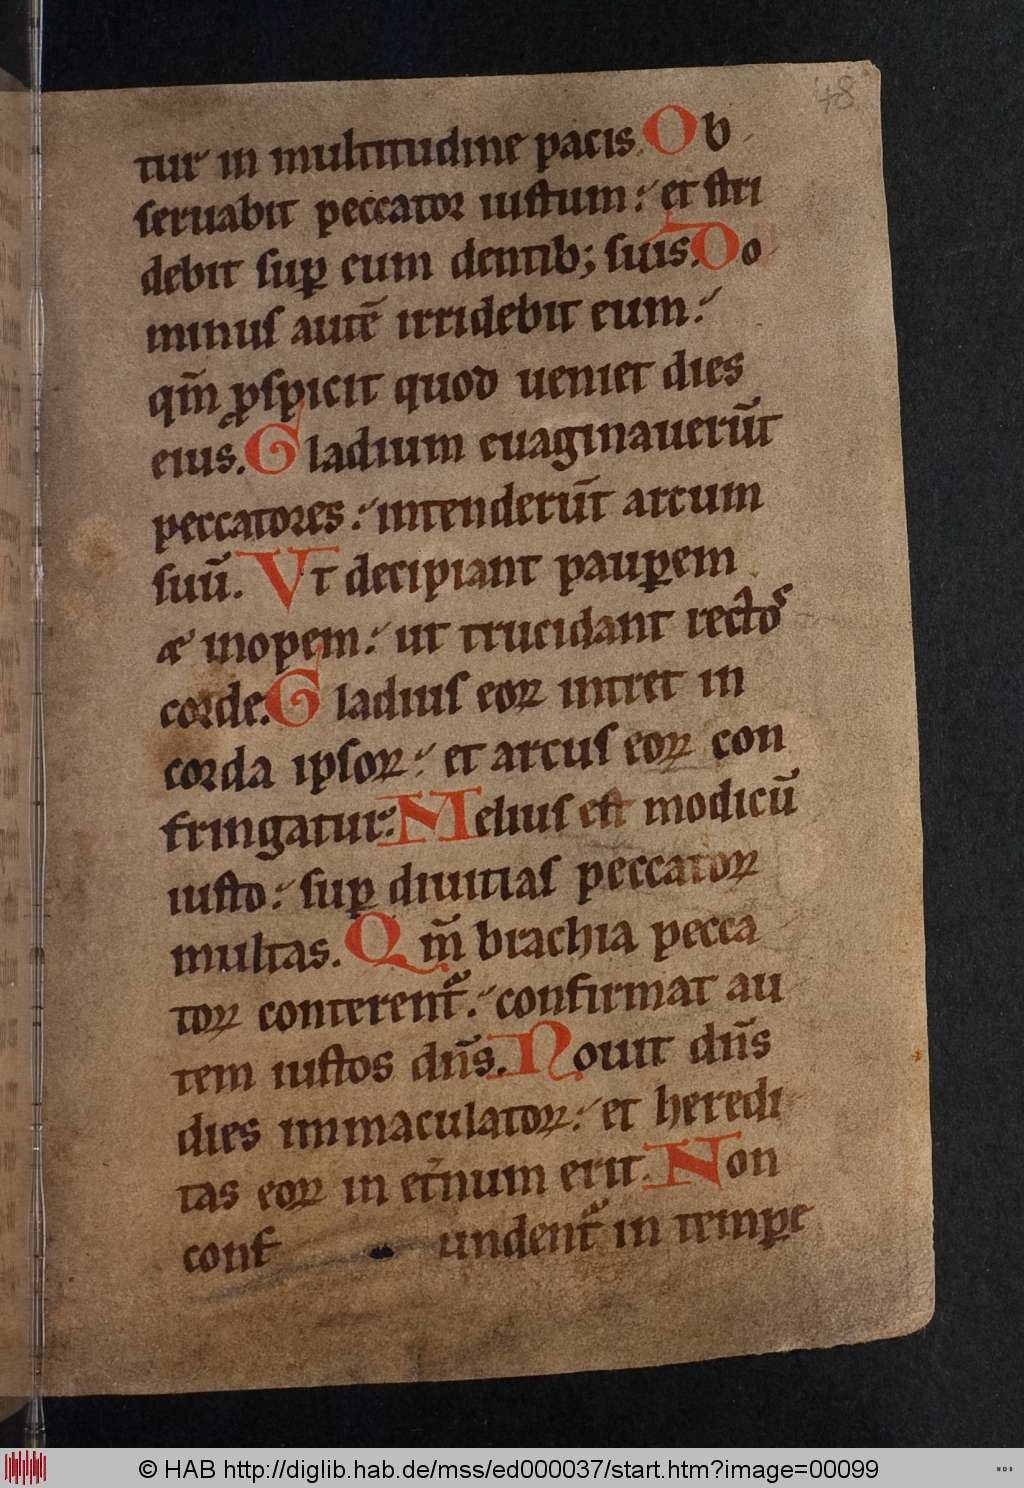 48
tur in multitudine pacis. Ob
seruabit peccator iustum: et stri
debit sup̱ eum dentib; suis. Do
minus autē irridebit eum:
qm̄ ꝓspicit quod ueniet dies
eius. Gladium euaginauerūt
peccatores: intenderūt arcum
suū. Vt decipiant paup̱em
& inopem: ut trucidant rectos
corde. Gladius eoꝝ intret in
corda ipsoꝝ: et arcus eoꝝ con
fringatur. Melius est modicū
iusto: sup̱ diuitias peccatoꝝ
multas. Qm̄ brachia pecca
toꝝ conterent᷑: confirmat au
tem iustos dn̄s. Nouit dn̄s
dies immaculatoꝝ: et heredi
tas eoꝝ in et̄num erit. Non
conf undent᷑ in temp̱e
© HAB http://diglib.hab.de/mss/ed000037/start.htm?image=00099